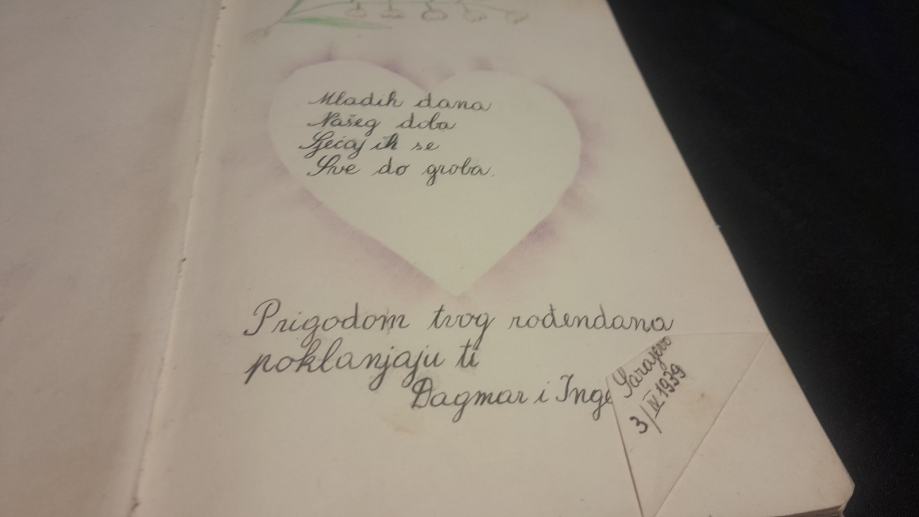 Mladih dana
Našeg doba
Sjećaj ih se
Sve do groba.
Prigodom tvog rođendana
poklanjaju ti
Dagmar i Inge
Sarajevo
3/IV.1939